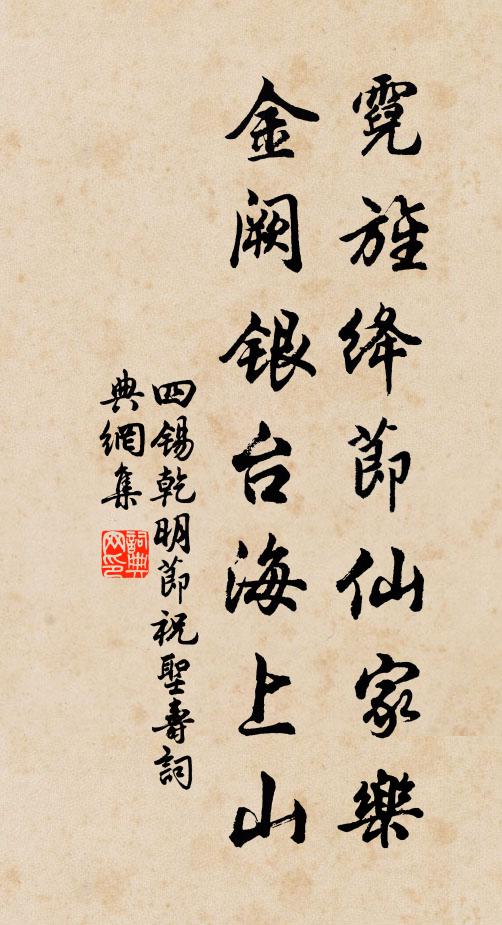 霓旌绛節仙家樂
金阙銀台海上山
四锡乾明節祝聖壽詞
典網集
詞典网印